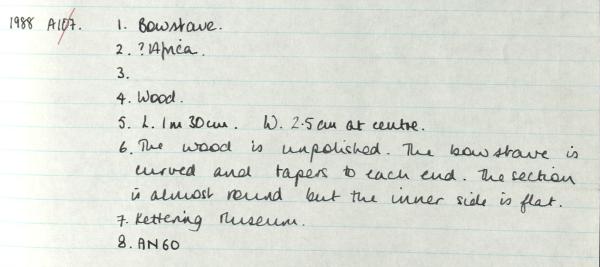 1988 A107. 1. Bowstave.
2. ?Africa.
3.
4. Wood.
5. L. 1m 30cm. W. 2.5cm at centre.
6. The wood is unpolished. The bowstave is
curved and tapers to each end. The section
is almost round but the inner side is flat.
7. Kettering Museum.
8. AN60